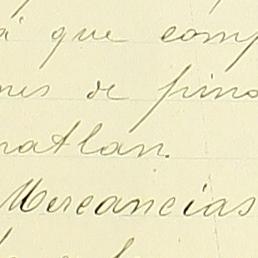 á que comp
nes de pino
natlan.
Mercancias